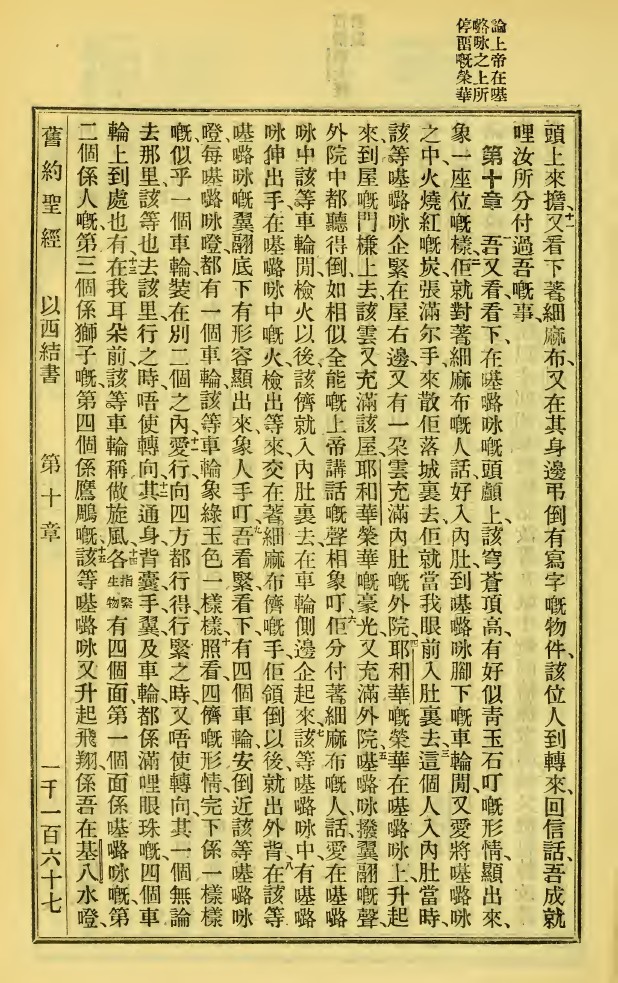 論上帝在𠸄
㗠咏之上所
停畱嘅榮華
頭上來擔、十一又看下著細麻布、又在其身邊弔倒有寫字嘅物件、該位人到轉來、回信話、吾成就
哩汝所分付過吾嘅事、
第十章 吾又看看下、在嗟㗠咏嘅頭顱上、該穹蒼頂高、有好似靑玉石叮嘅形情、顯出來、
象一座位嘅樣、二佢就對著細麻布嘅人話、好入內肚、到嗟㗠咏腳下嘅車輪閒、又愛將嗟㗠咏
之中火燒紅嘅炭、張滿尔手、來散佢落城裏去、佢就當我眼前入肚裏去、三這個人入內肚當時、
該等嗟㗠咏企緊在屋右邊、又有一朶雲充滿內肚嘅外院、四耶和華嘅榮華、在嗟㗠咏上、升起
來、到屋嘅門槺上去、該雲又充滿該屋、耶和華榮華嘅豪光、又充滿外院、五嗟㗠咏撥翼翮嘅聲、
外院中都聽得倒、如相似全能嘅上帝講話嘅聲相象叮、六佢分付著細麻布嘅人話、愛在嗟㗠
咏中該等車輪閒、檢火以後、該儕就入內肚裏去、在車輪側邊企起來、七該等嗟㗠咏中、有嗟㗠
咏伸出手、在嗟㗠咏中嘅火、檢出等來、交在著細麻布儕嘅手、佢領倒以後、就出外背、八在該等
嗟㗠咏嘅翼翮底下、有形容顯出來、象人手叮、九吾看緊看下、有四個車輪、安倒近該等嗟㗠咏
嶝、每嗟㗠咏嶝、都有一個車輪、該等車輪、象綠玉色一樣樣、十照看四儕嘅形情、完下係一樣樣
嘅、似乎一個車輪裝在別二個之內、十一愛行、向四方都行得、行緊之時、又唔使轉向、其一個無論
去那里、該等也去該里、行之時、唔使轉向、十二其通身、背囊、手、翼、及車輪、都係滿哩眼珠嘅、四個車
輪上到處也有、十三在我耳朶前、該等車輪稱做旋風、十四各指緊生物有四個面、第一個面、係嗟㗠咏嘅、第
二個係人嘅、第三個係獅子嘅、第四個係鷹鵰嘅、十五該等嗟㗠咏又升起飛翔、係吾在基八水嶝、
舊約聖經 以西結書 第十章 一千一百六十七